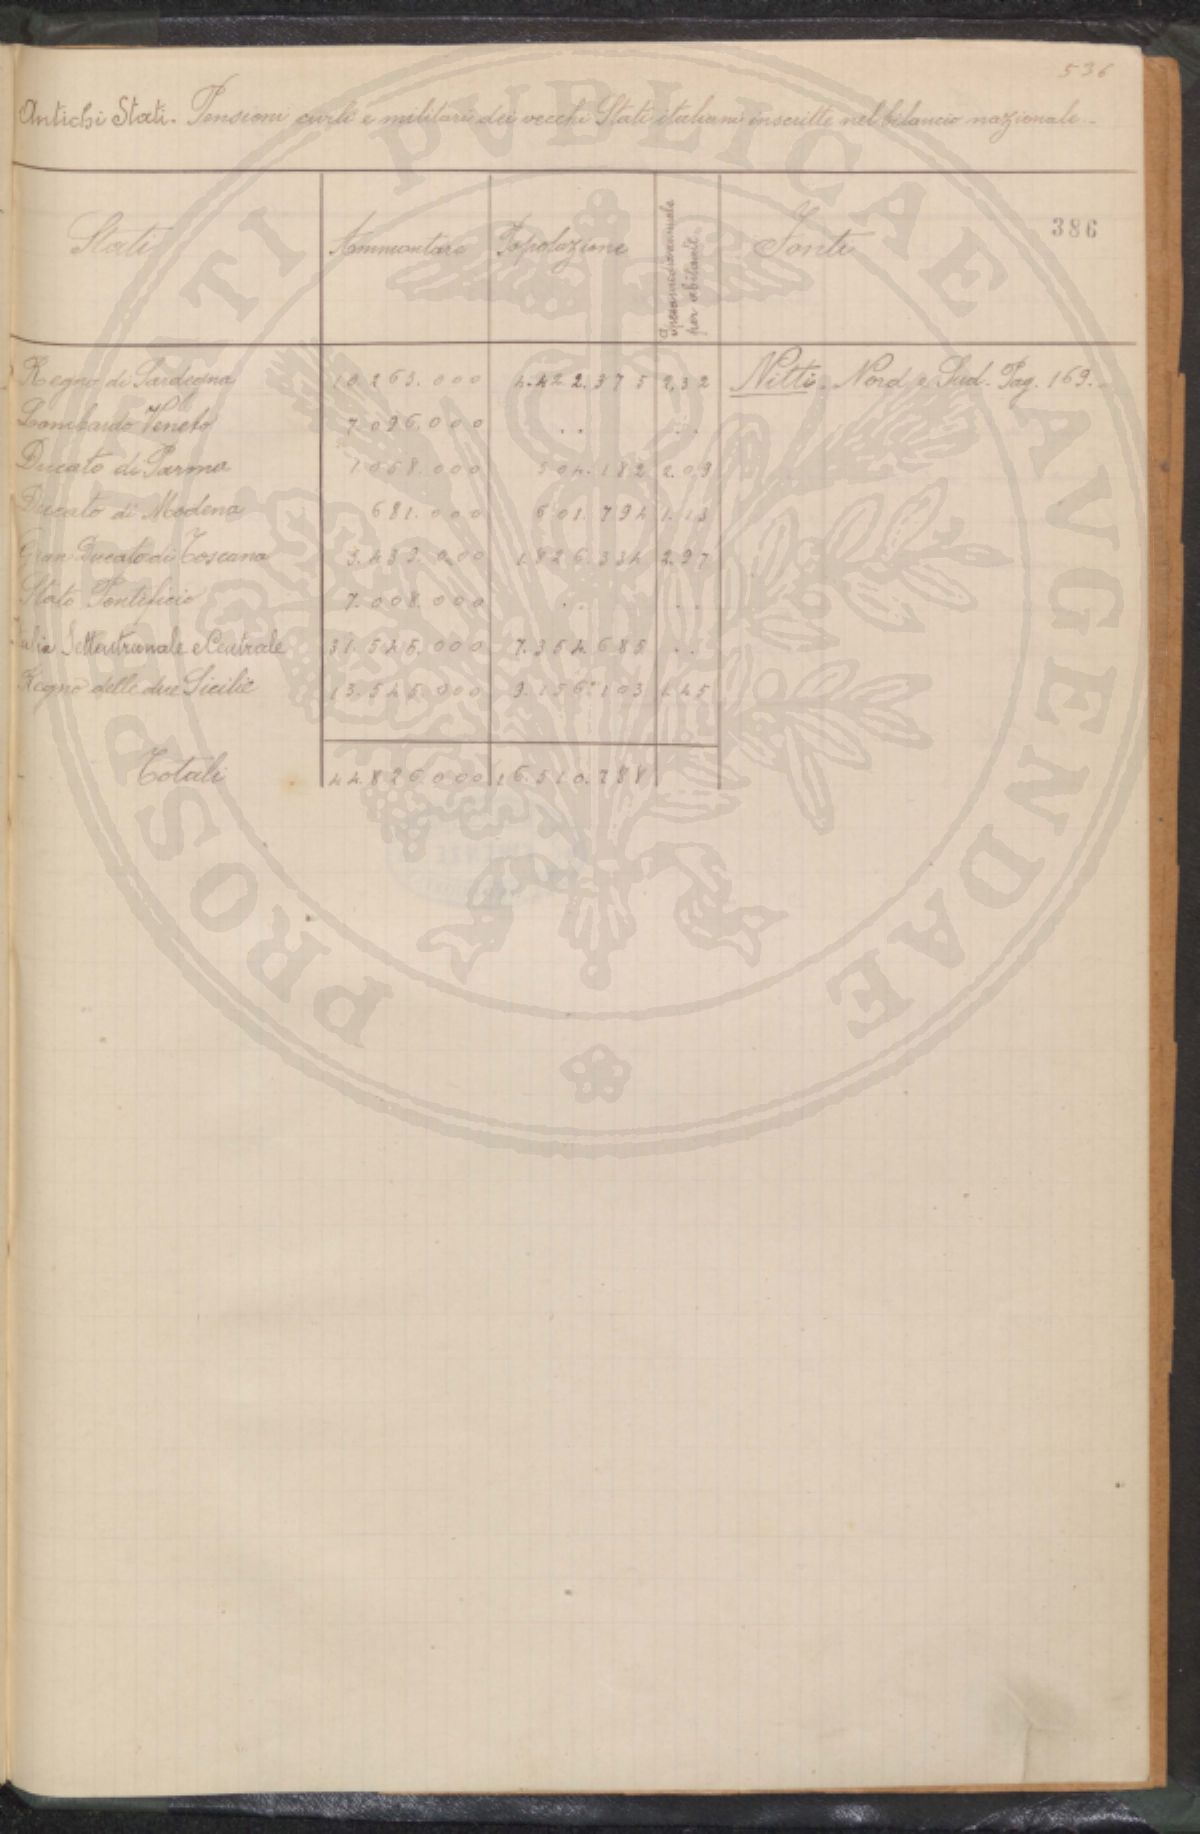 536
Antichi Stati. Pensioni civili e militari dei vecchi Stati italiani inscritte nel bilancio nazionale.
386
Stati Ammontare Popolazione per abitante Fonti
Regno di Sardegna 10.263.000 4.422.375 2,32 Nitti. Nord e Sud. Pag. 169.
Lombardo Veneto 7.096.000 .. ..
Ducato di Parma 1.068.000 504.182 2.09
Ducato di Modena 681.000 601.794 1.13
Gran Ducato di Toscana 5.433.000 1.826.334 2.97
Stato Pontificio 7.008.000 .. ..
Italia Settentrionale e Centrale 31.545.000 7.354.685 ..
Regno delle due Sicilie 13.545.000 9.156.103 1.45
Totali 44.826.000 16.510.788
PROSPERITATI PVBLICAE AVGENDAE